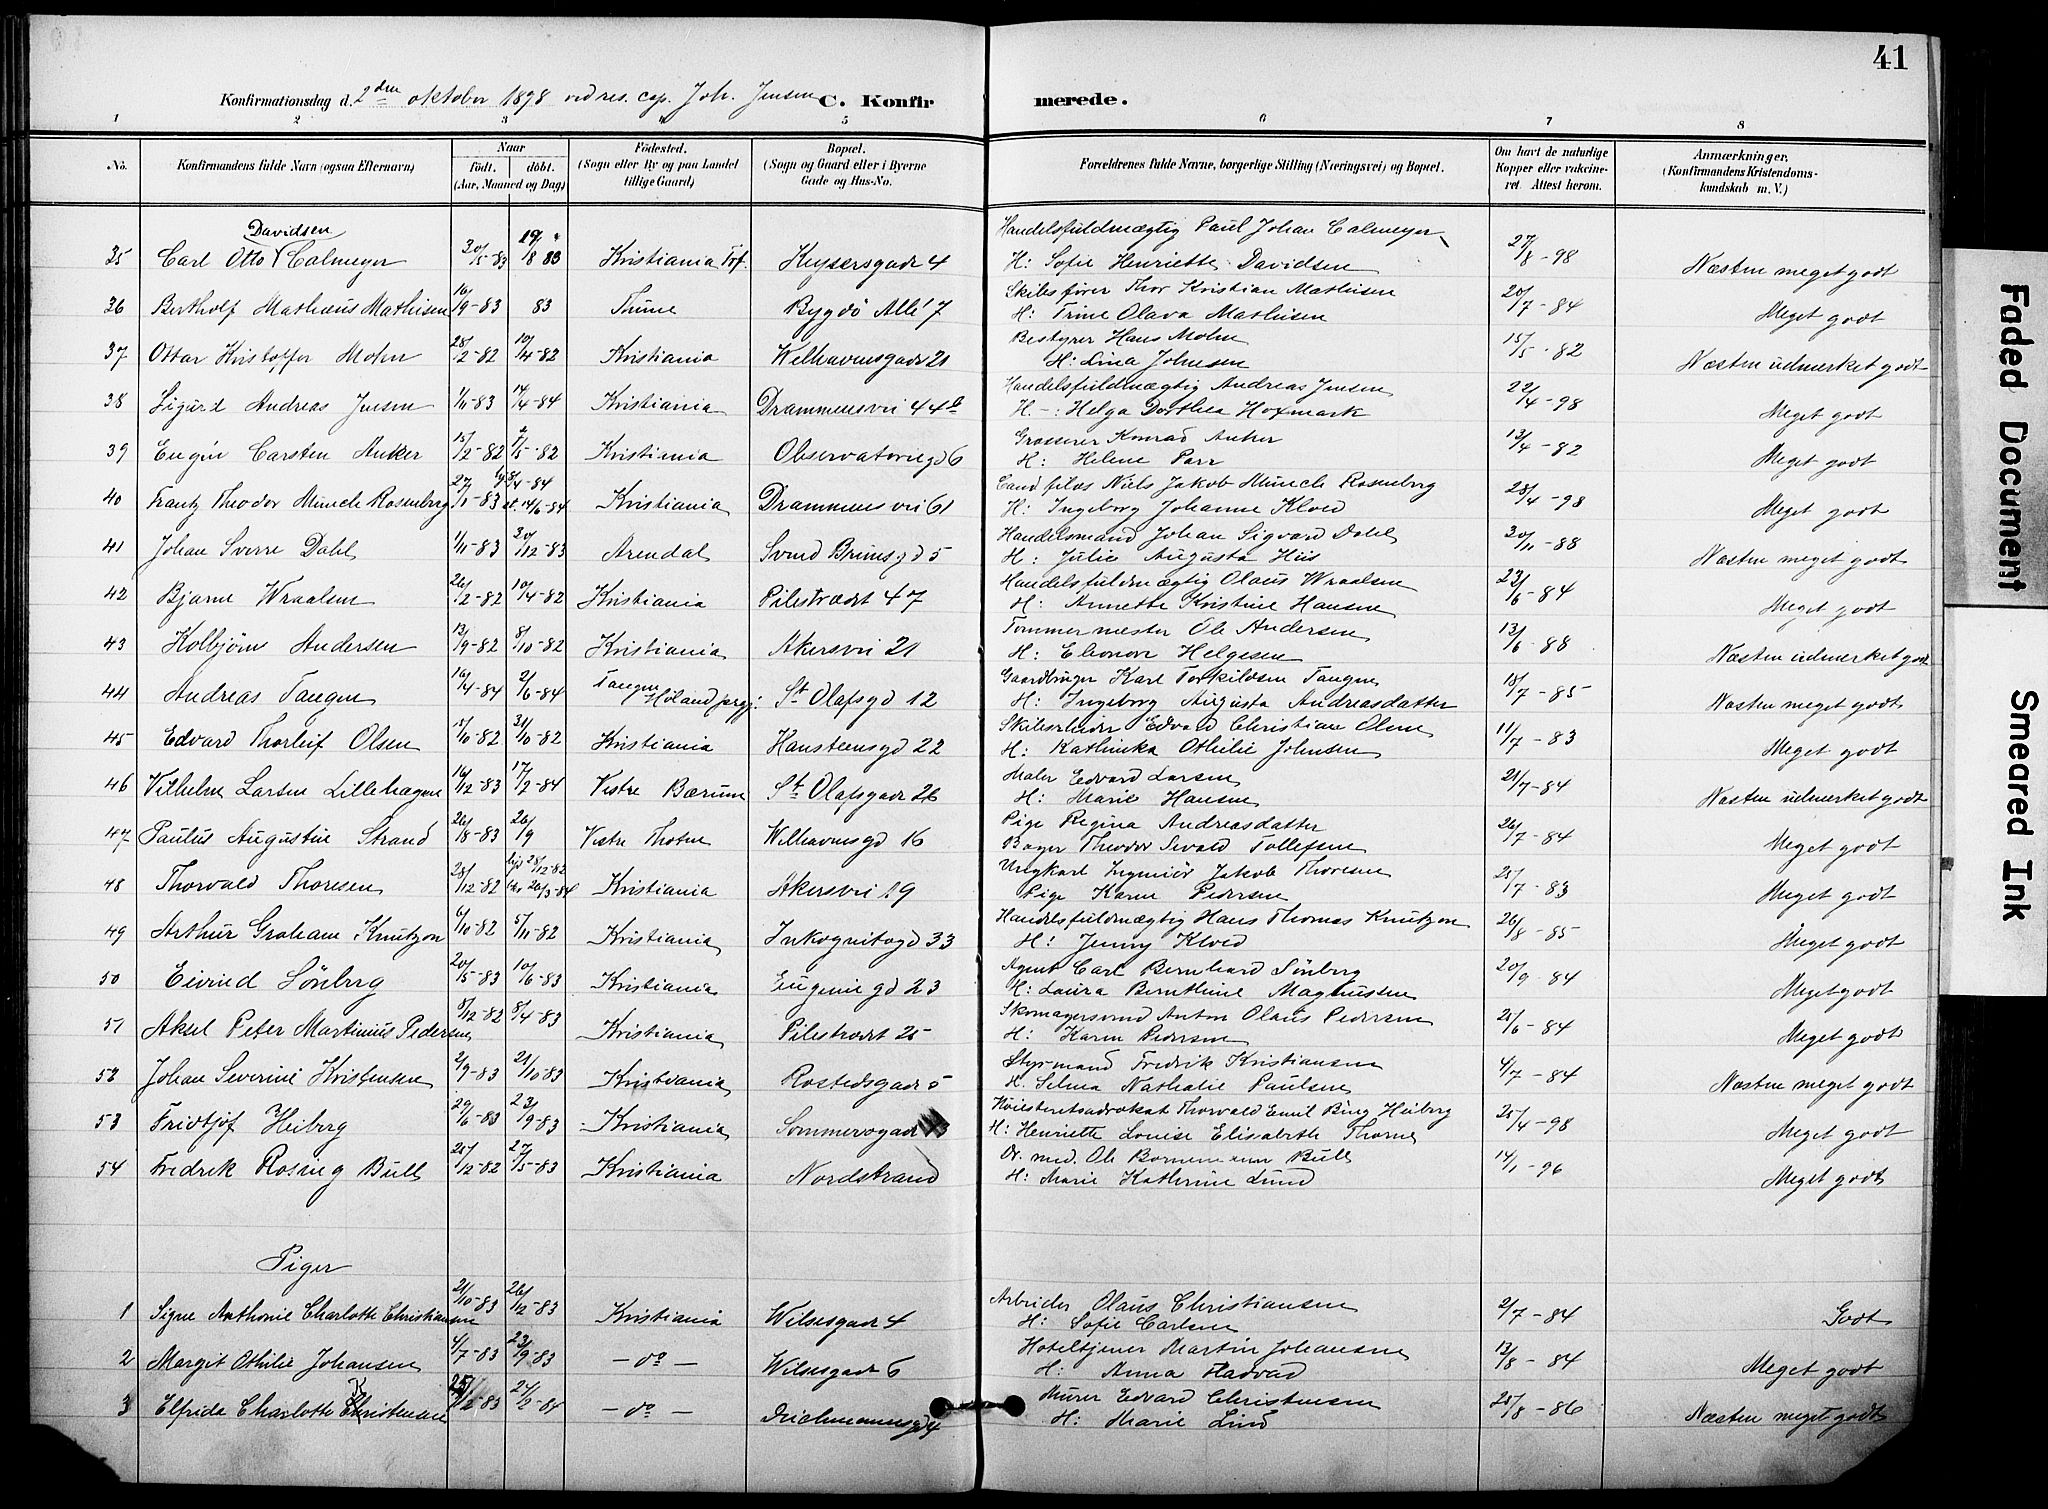 41
Konfirmationsdag d. 2den oktober 1898 ved res. cap. Joh. Jensen C. Konfirmerede.
1 2 3 4 5 6 7 8
No. Konfirmandens fulde Navn (ogsaa Efternavn) Naar födt. döbt. (Aar, Maaned og Dag) Födested. (Sogn eller By og paa Landet tillige Gaard) Bopæl. (Sogn og Gaard eller i Byerne Gade og Hus-No. Forældrenes fulde Navne, borgerlige Stilling (Næringsvei) og Bopæl. Om havt de naturlige Kopper eller vakcineret. Attest herom. Anmærkninger. (Konfirmandens Kristendomskundskab m. V.)
Davidsen
35 Carl Otto Calmeyer 30/5-83 19/8 83 Kristiania Keysersgade 4 Handelsfuldmægtig Paul Johan Calmeyer 27/8-98 Næsten meget godt
H: Sofie Henriette Davidsen
36 Bertholf Mathæus Mathisen 16/9-83 83 Thune Bygdö Allé 7 Skibsfører Thor Kristian Mathisen 20/7-84 Meget godt
H: Trine Olava Mathisen
37 Ottar Kristoffer Mohn 28/2-82 10/4-82 Kristiania Welhavensgade 21 Bestyrer Hans Mohn 15/5-82 Næsten udmerket godt
H: Lina Johnsen
38 Sigurd Andreas Jensen 1/11-83 14/4-84 Kristiania Drammensvei 44b Handelsfuldmægtig Andreas Jensen 22/4-98 Meget godt
H-: Helga Dorthea Hoxmark
39 Eugén Carsten Anker 15/2-82 2/5-82 Kristiania Observatoriegd 6 Grosserer Konrad Anker 13/4-82 Meget godt
H: Helene Parr
40 Frantz Theodor Münch Rosenberg 27/11-83 14/6-84 Kristiania Drammensvei 61 Cand filos Niels Jakob Münch Rosenberg 28/4-98 Meget godt
H: Ingeborg Johanne Kloed
41 Johan Sverre Dahl 1/11-83 30/12-83 Arendal Svend Bruunsgd 5 Handelsmand Johan Sigvard Dahl 30/11-88 Næsten meget godt
H: Julie Augusta Huis
42 Bjarne Wraalsen 26/2-82 10/4-82 Kristiania Pilestrædt 47 Handelsfuldmægtig Olaus Wraalsen 23/6-84 Meget godt
H: Annette Kristine Hansen
43 Kolbjörn Andersen 13/9-82 8/10-82 Kristiania Akersvei 21 Tømmermester Ole Andersen 13/6-88 Næsten udmerket godt
H: Elenore Helgesen
44 Andreas Tangen 16/4-84 2/6-84 Tangen Höland prgj: St Olafsgd 12 Gaardbruger Karl Torkildsen Tangen 18/7-85 Næsten meget godt
H: Ingeborg Augusta Andreasdatter
45 Edvard Thorleif Olsen 5/10-82 31/10-82 Kristiania Hansteensgd 22 Edvard Christian Olsen 11/7-83 Meget godt
H: Kathinka Othilie Johnsen
46 Vilhelm Larsen Lillehagen 16/12-83 17/2-84 Vestre Bærum St Olafsgade 26 Maler Edvard Larsen 21/7-84 Næsten udmerket godt
H: Marie Hansen
47 Paulus Augustin Strand 26/8-83 26/9 Vestre Thoten Welhavensgd 16 Pige Regina Andreasdatter 26/7-84 Meget godt
Bager Theodor Sevald Tollefsen
48 Thorvald Thoresen 28/12-82 hjd 28/12-82 kr 26/3-84 Kristiania Akersvei 19 Ungkarl Ingeniör Jakob Thoresen 25/7-83 Meget godt
Pige Karen Pedersen
49 Arthur Graham Knutzon 6/10-82 5/11-82 Kristiania Inkognitogd 33 Handelsfuldmægtig Hans Thomas Knutzon 26/8-85 Meget godt
H: Jenny Kloed
50 Eivind Sönberg 20/5-83 10/6-83 Kristiania Eugenie gd 23 Agent Carl Bernhard Sönberg 20/9-84 Meget godt
H: Laura Bernthine Magnussen
51 Aksel Peter Martinius Pedersen 8/12-82 8/4-83 Kristiania Pilestrædt 25 Skomagersvend Anton Olaus Pedersen 25/6-84 Meget godt
H: Karen Pedersen
52 Johan Severine Kristensen 2/9-83 21/10-83 Kristiania Rostedsgade 5 Styrmand Fredrik Kristiansen 4/7-84 Næsten meget godt
H. Selma Nathalie Paulsen
53 Fridtjof Heiberg 29/6-83 23/9-83 Kristiania Sommerogade Höiesteretsadvokat Thorvald Emil Bing Heiberg 25/4-98 Meget godt
H: Henriette Louise Elisabeth Thorne
54 Fredrik Rosing Bull 25/12-82 27/5-83 Kristiania Nordstrand Dr. med. Ole Bornemann Bull 14/1-96 Meget godt
H: Marie Kathrine Lund
Piger
1 Signe Anthonie Charlotte Christiansen 21/10-83 26/12-83 Kristiania Wilsesgade 4 Arbeider Olaus Christiansen 2/7-84 Godt
H: Sofie Carlsen
2 Margit Othilie Johansen 4/7-83 23/9-83 -do- Wilsesgade 6 Hoteltjener Martin Johansen 13/8-84 Meget godt
H: Anna Fladvad
3 Elfrida Charlotte Christensen -83 24/2-84 -do- Deichmannsgd 4 Murer Edvard Christensen 25/8-86 Næsten meget godt
H: Marie Lind
Faded Document
Smeared Ink